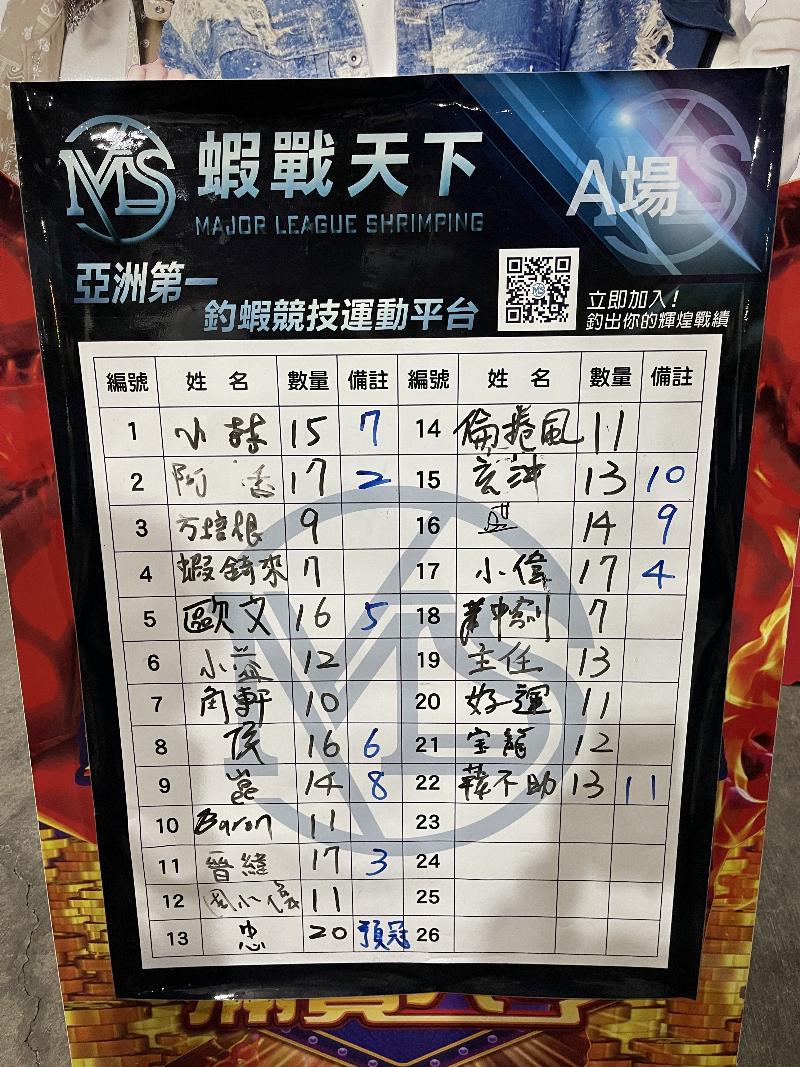 MLS
蝦戰天下
MAJOR LEAGUE SHRIMPING
A場
亞洲第一
釣蝦競技運動平台
立即加入!
釣出你的輝煌戰績
編號 姓名 數量 備註 編號 姓名 數量 備註
1 小林 15 7 14 倫捲風 11
2 阿 17 2 15 13 10
3 方培根 9 16 14 9
4 蝦錡來 7 17 小偉 17 4
5 歐文 16 5 18 7
6 小益 12 19 主任 13
7 角軒 10 20 好運 11
8 16 6 21 宝龍 12
9 崑 14 8 22 不助 13 11
10 Baron 11 23
11 晉緯 17 3 24
12 周小偉 11 25
13 忠 20 預冠 26